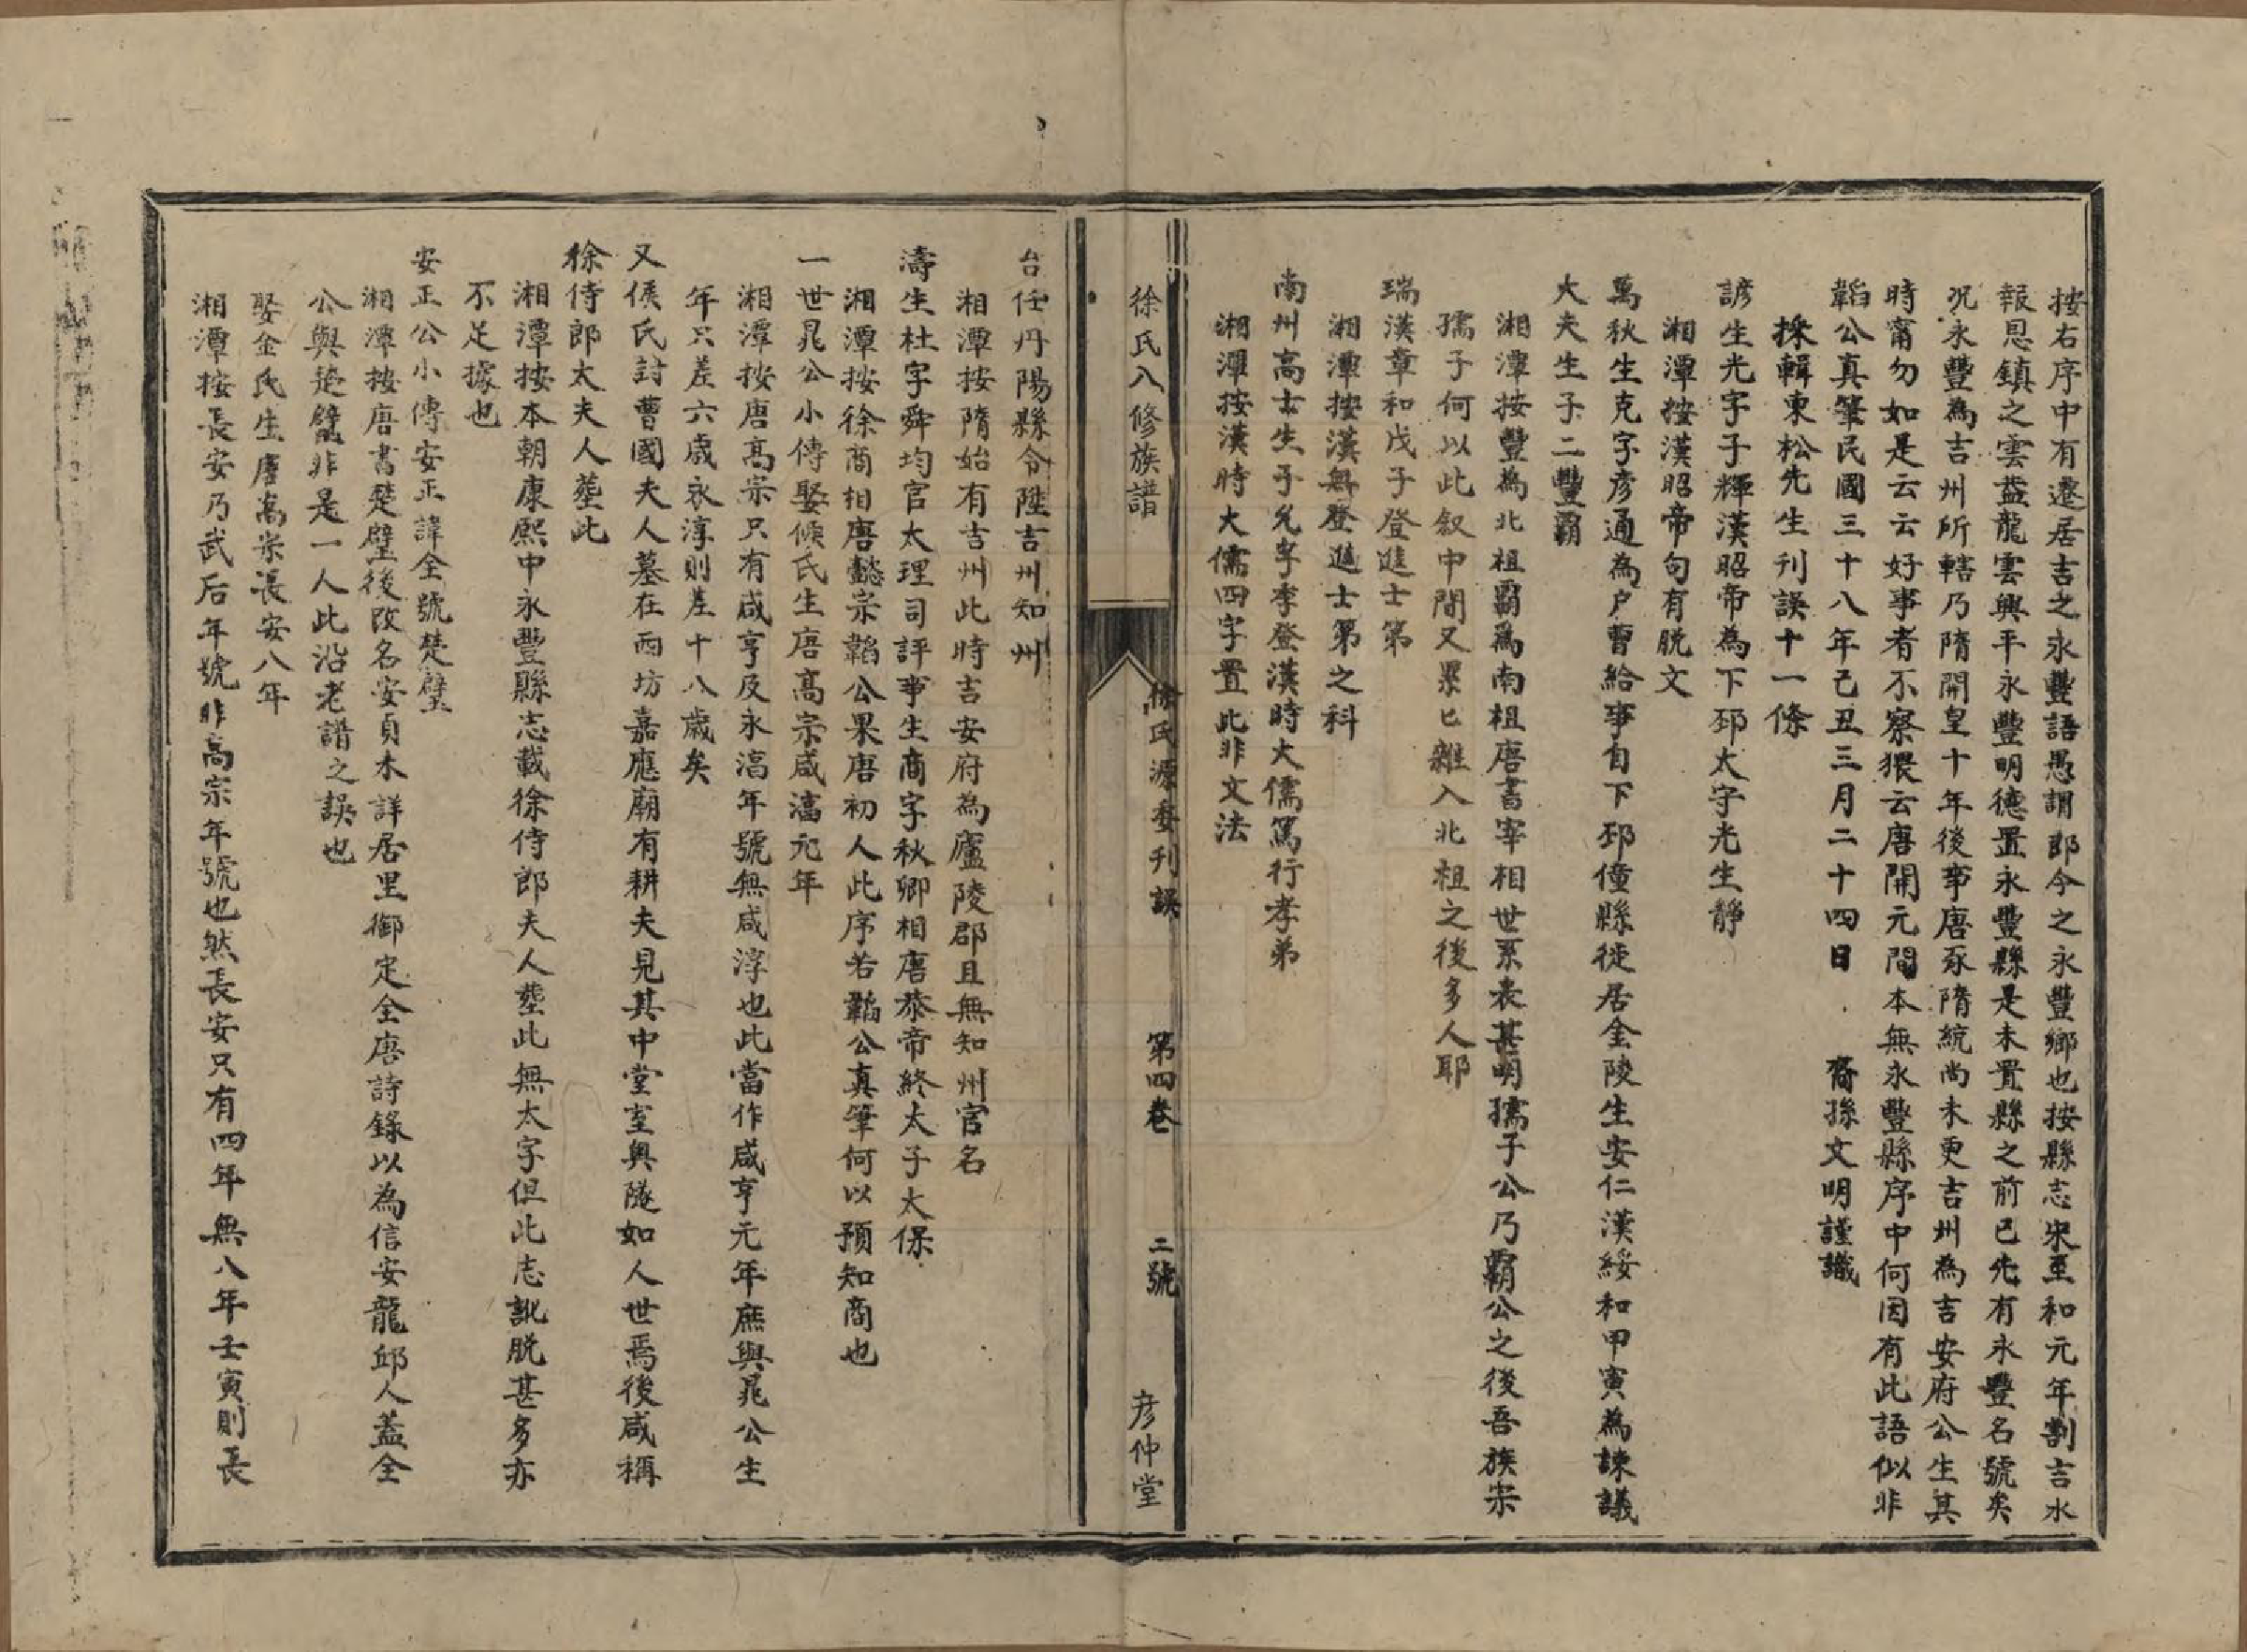 按右序中有遷居吉之永豐語愚謂即今之永豐鄉也按縣志宋至和元年割吉水
報恩鎮之雲葢龍雲興平永豐明德置永豐縣是未置縣之前已先有永豐名號矣
况永豐為吉州所轄乃隋開皇十年後事唐承隋統尚未更吉州為吉安府公生其
時甯勿如是云云好事者不察猥云唐開元間本無永豐縣序中何因有此語似非
韜公真筆民國三十八年己丑三月二十四日 裔孫文明謹識
採輯東松先生刊誤十一條
諺生光字子輝漢昭帝為下邳太守光生靜
湘潭按漢昭帝句有脫文
萬秋生克字彥通為户曹給事自下邳僮縣徙居金陵生安仁漢綏和甲寅為諫議
大夫生子二豐霸
湘潭按豐為北祖霸為南祖唐書宰相世系表甚明孺子公乃霸公之後吾族宗
孺子何以此叙中間又累匕雜入北祖之後多人耶
瑞漢章和戊子登進士第
湘潭按漢無登進士第之科
南州高士生子允字季登漢時大儒篤行孝弟
湘潭按漢時大儒四字置此非文法
徐氏八修族譜
徐氏源委刊誤
第四卷
二號
彥仲堂
台任丹陽縣令陞吉州知州
湘潭按隋始有吉州此時吉安府為廬陵郡且無知州官名
濤生杜字舜均官太理司評事生商字秋卿相唐恭帝終太子太保
湘潭按徐商相唐懿宗韜公果唐初人此序若韜公真筆何以預知商也
一世晁公小傳娶候氏生唐高宗咸滈元年
湘潭按唐高宗只有咸亨及永滈年號無咸淳也此當作咸亨元年庶與晁公生
年只差六歲永淳則差十八歲矣
又侯氏封曹國夫人墓在西坊嘉應廟有耕夫見其中堂室奥隧如人世焉後咸稱
徐侍郎太夫人塟此
湘潭按本朝康熙中永豐縣志載徐侍郎夫人塟此無太字但此志訛脫甚多亦
不足據也
安正公小傳安正諱全號楚璧
湘潭按唐書楚璧後改名安貞未詳居里御定全唐詩錄以為信安龍邱人葢全
公與楚璧非是一人此沿老譜之誤也
娶金氏生唐高宗長安八年
湘潭按長安乃武后年號非高宗年號也然長安只有四年無八年壬寅則長